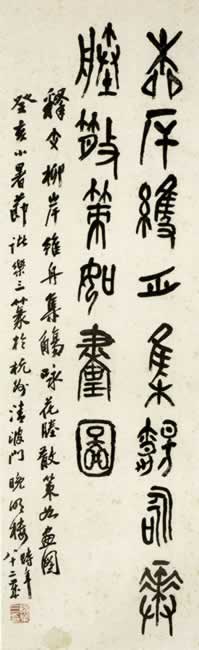 柳岸維舟集觴詠華
塍散策如畫圖
釋文柳岸維舟集觴咏花塍散策如畫圖
癸亥小暑節諸樂三篆於杭州清波門晚明樓時年
八十二歲